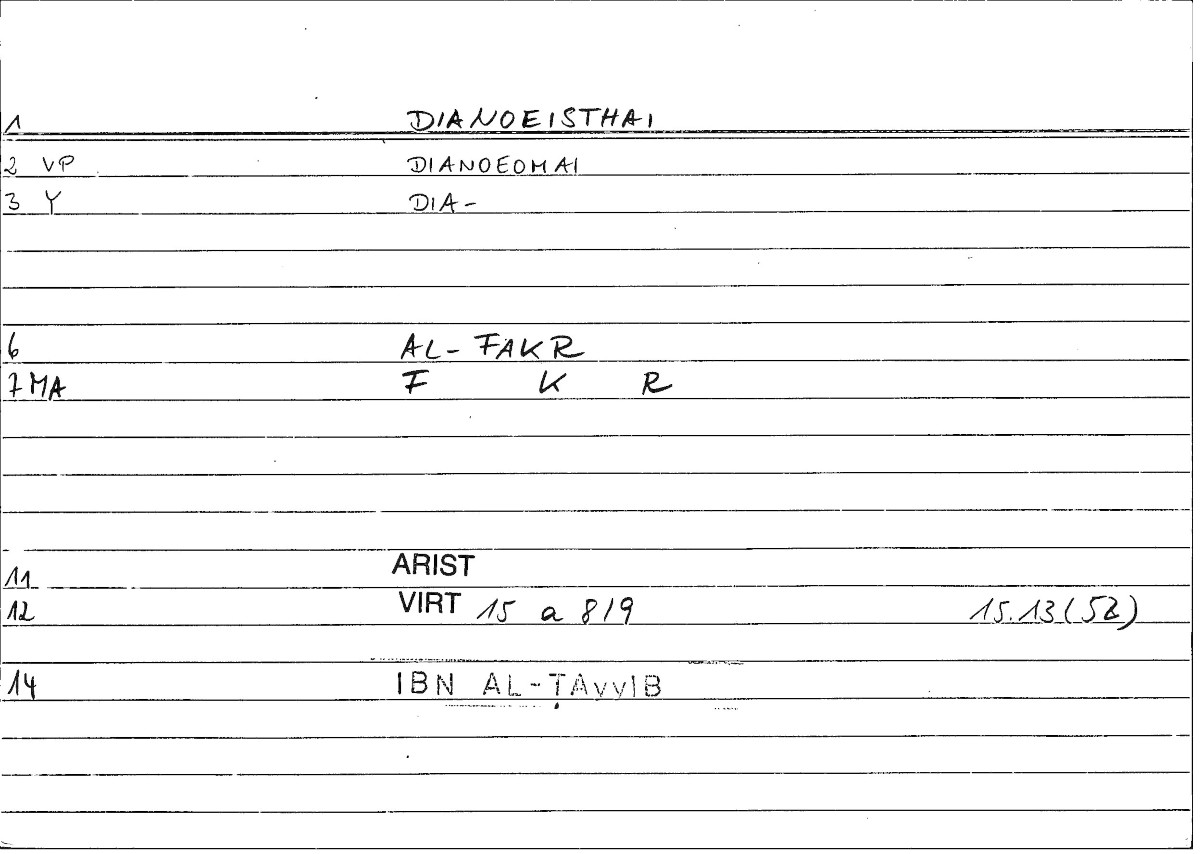 1 DIANOEISTHAI
2 VP DIANOEOMAI
3 Y DIA-
6 AL-FAKR
7 MA F K R
11 ARIST
12 VIRT 15 a 8/9 15.13 (52)
14 IBN AL-ṬAyyIB